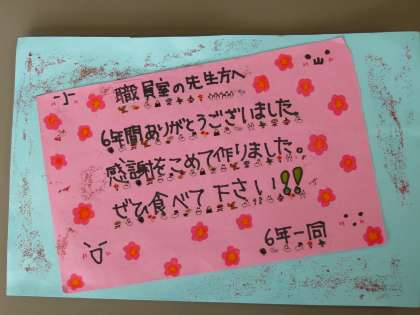 職員室の先生方へ
6年間ありがとうございました。
感謝をこめて作りました。
ぜひ食べて下さい!!
6年一同